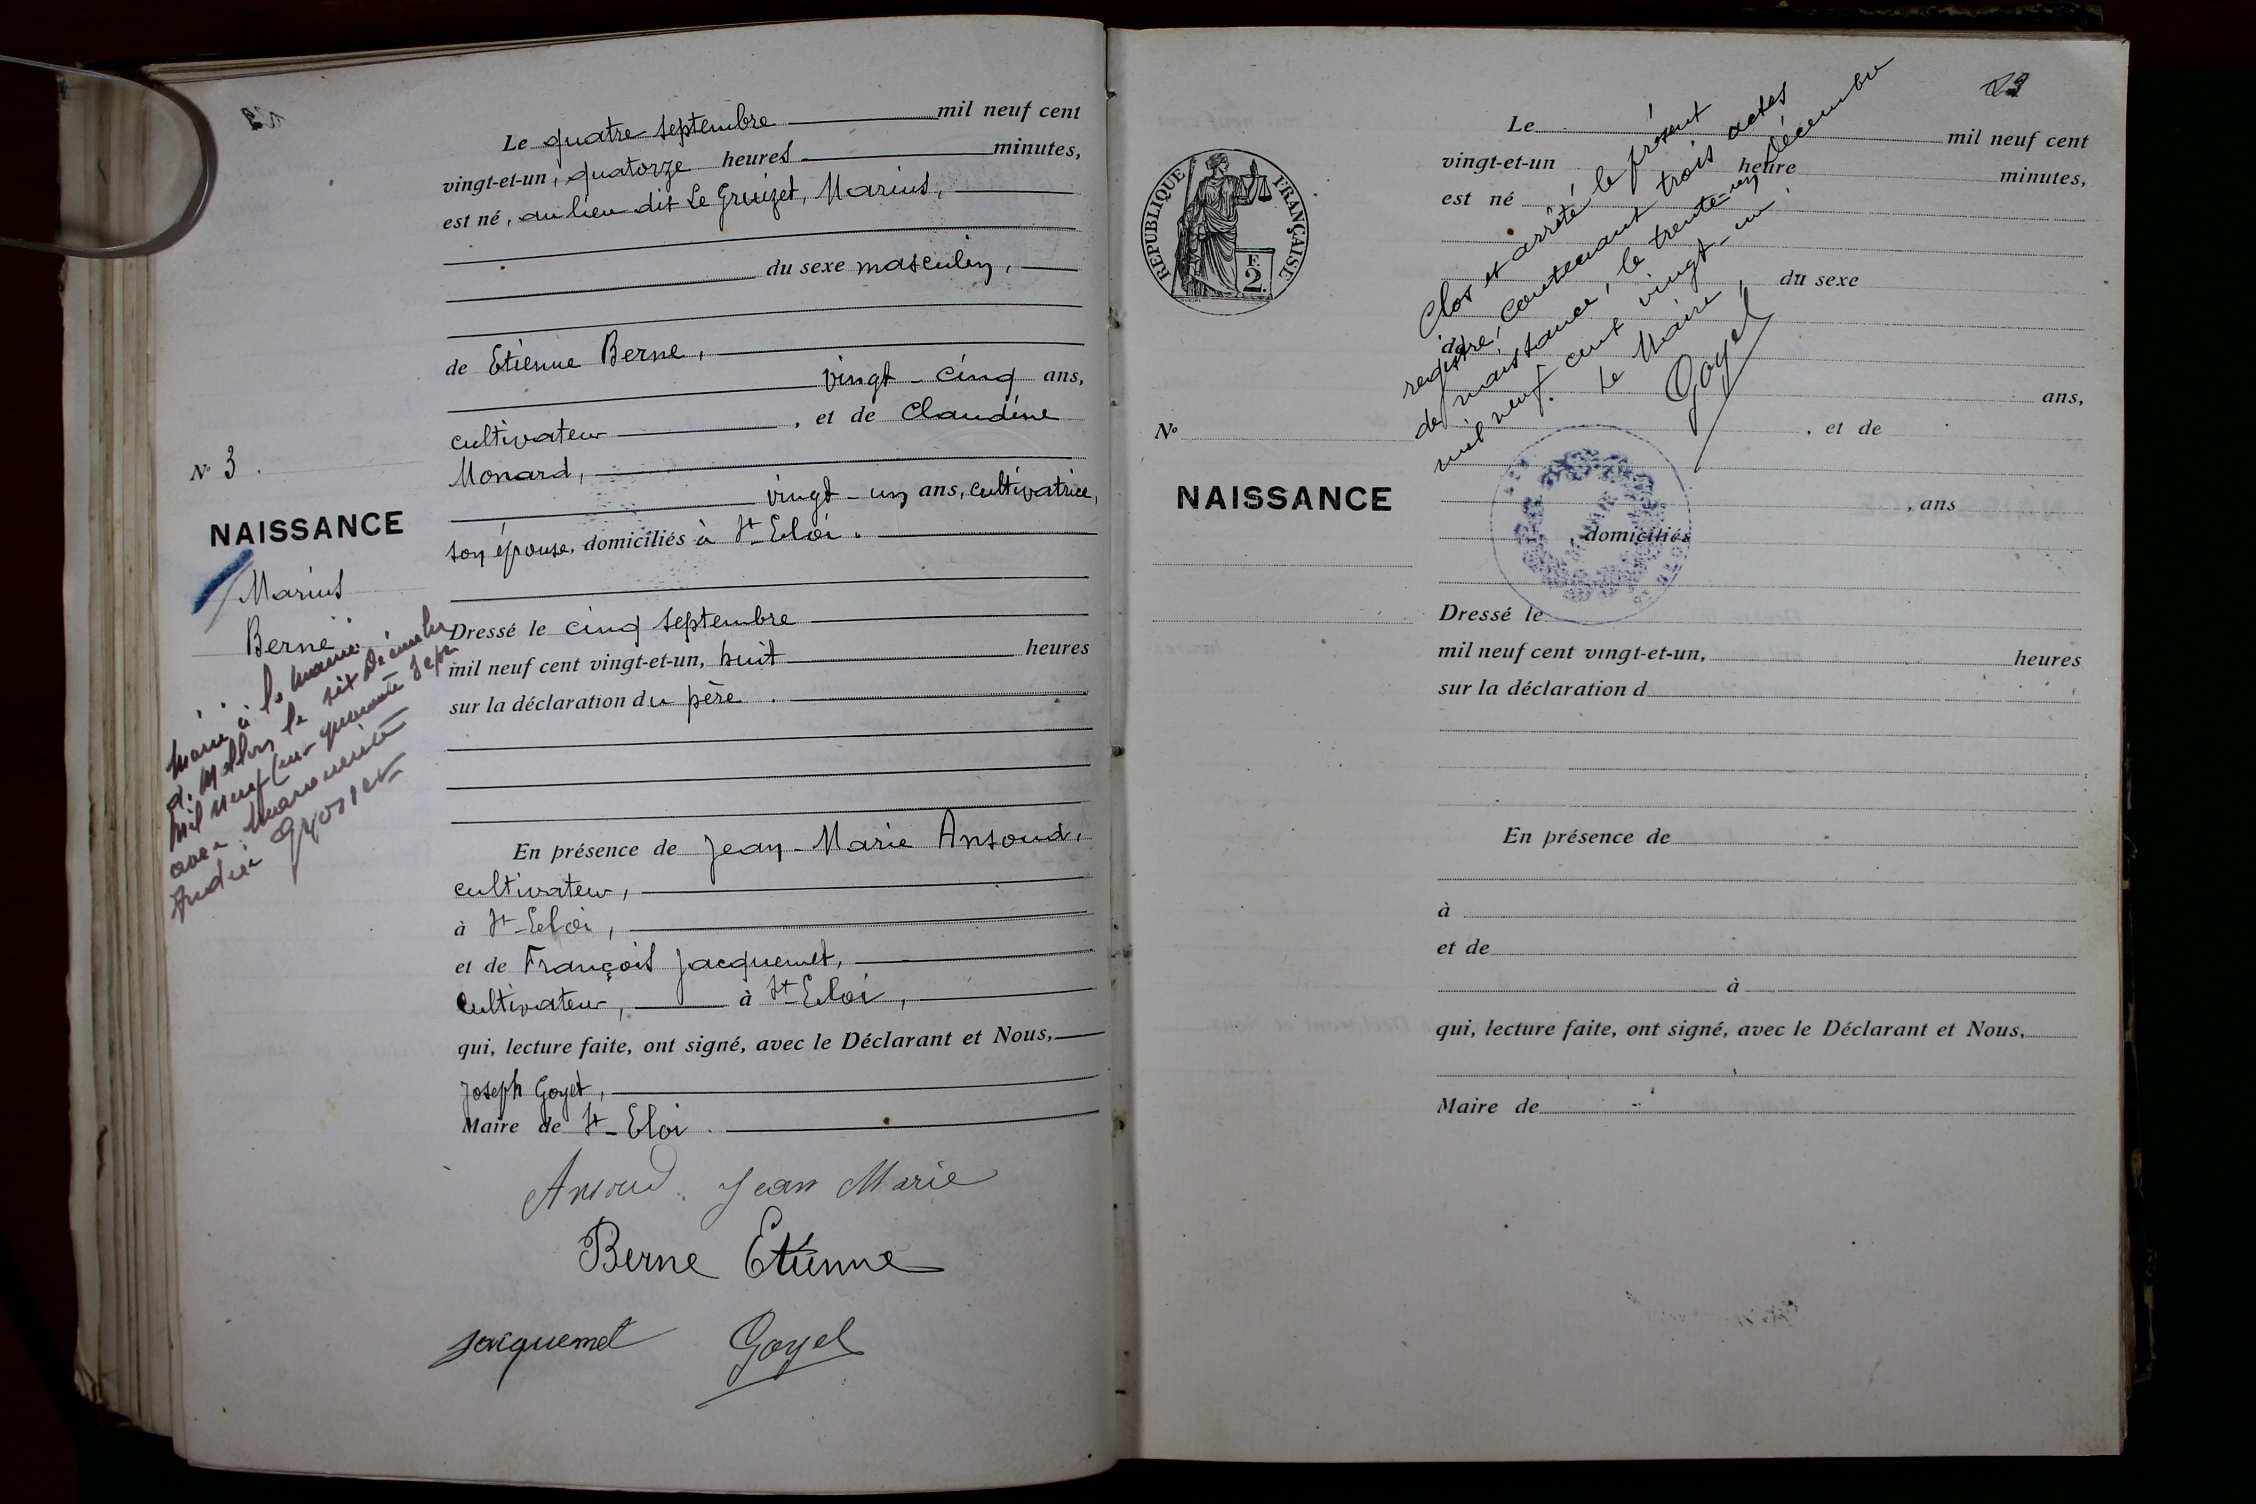 Le quatre septembre mil neuf cent
vingt-et-un, quatorze heures minutes,
est né, au lieu dit Le Gruizet, Marius,
du sexe masculin,
de Etienne Berne,
vingt-cinq ans,
cultivateur , et de Claudine
Monard,
vingt-un ans, cultivatrice,
son épouse, domiciliés à St-Eloi.
Dressé le cinq septembre
mil neuf cent vingt-et-un, huit heures
sur la déclaration du père.
En présence de Jean-Marie Ansoud,
cultivateur,
à St-Eloi,
et de François Jacquemet,
cultivateur, à St-Eloi,
qui, lecture faite, ont signé, avec le Déclarant et Nous,
Joseph Goyet,
Maire de St-Eloi.
Ansoud Jean Marie
Berne Etienne
Jacquemet Goyet
N° 3.
NAISSANCE
Marius
Berne
Marié à la mairie
le six Décembre
mil neuf cent quarante sept
avec
RÉPUBLIQUE FRANÇAISE
F.
2.
N°
NAISSANCE
Le mil neuf cent
vingt-et-un heure minutes,
est né
du sexe
de
ans,
, et de
, ans
, domiciliés
Dressé le
mil neuf cent vingt-et-un, heures
sur la déclaration d
En présence de
à
et de
à
qui, lecture faite, ont signé, avec le Déclarant et Nous,
Maire de
Clos et arrêté le présent
registre, contenant trois actes
de naissance, le trente-un décembre
mil neuf cent vingt-un.
Le Maire,
Goyet